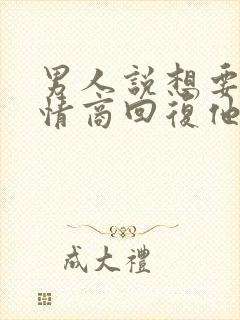 男人說想要
情商回復他
成大禮